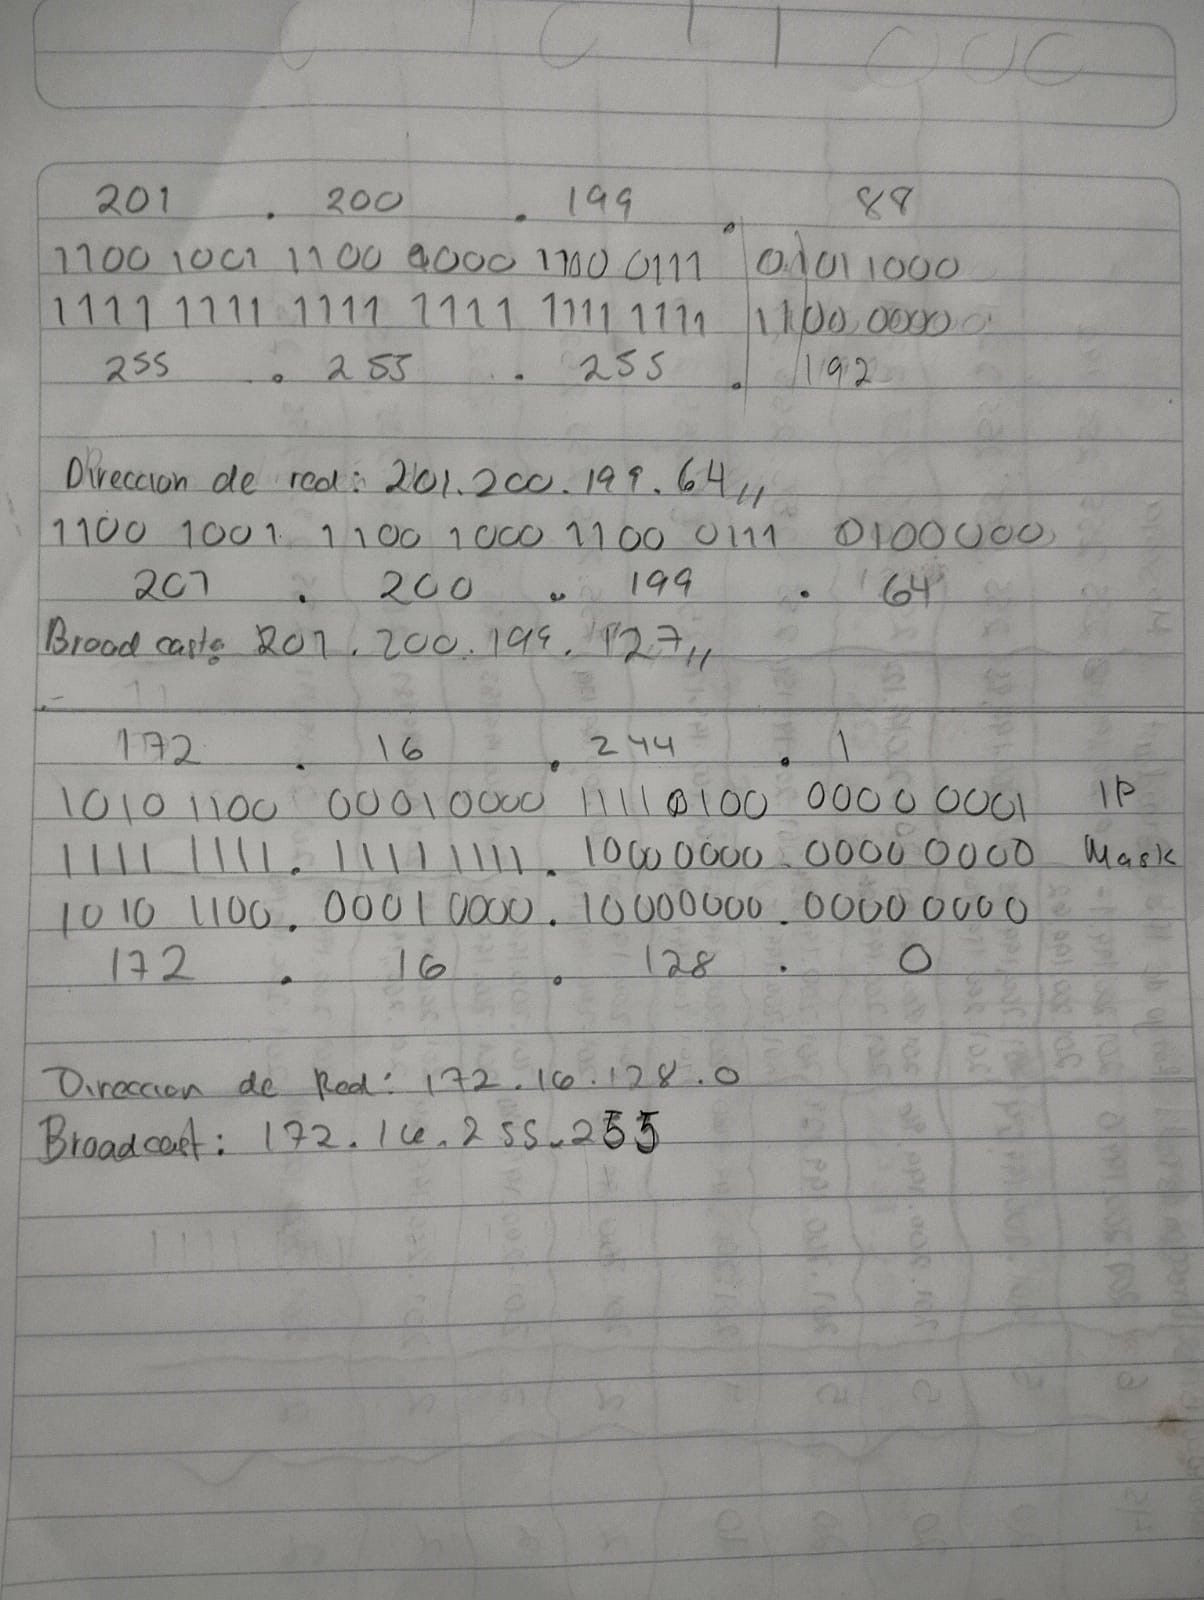 201 . 200 . 199 . 88
1100 1001 1100 1000 1100 0111 01011000
1111 1111 1111 1111 1111 1111 1100 0000
255 . 255 . 255 . 192
Direccion de red: 201.200.199.64,,
1100 1001 1100 1000 1100 0111 0100000
201 . 200 . 199 . 64
Broad cast: 201.200.199.127,,
172 . 16 . 244 . 1
1010 1100 00010000 11110100 0000 0001 IP
1111 1111. 11111111. 1000 0000. 0000 0000 Mask
1010 1100. 0001 0000. 10000000. 0000 0000
172 . 16 . 128 . 0
Direccion de Red: 172.16.128.0
Broadcast: 172.16.255.255